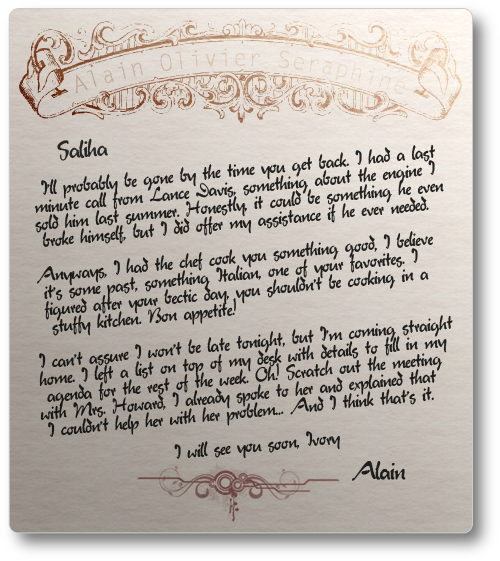 Alain Olivier Seraphine
Saliha
I'll probably be gone by the time you get back. I had a last
minute call from Lance Davis, something about the engine I
sold him last summer. Honestly, it could be something he even
broke himself, but I did offer my assistance if he ever needed.
Anyways, I had the chef cook you something good, I believe
it's some past, something Italian, one of your favorites. I
figured after your bectic day, you shouldn't be cooking in a
stuffy kitchen. Bon appetite!
I can't assure I won't be late tonight, but I'm coming straight
home. I left a list on top of my desk with details to fill in my
agenda for the rest of the week. Oh! Scratch out the meeting
with Mrs. Howard, I already spoke to her and explained that
I couldn't help her with her problem... And I think that's it.
I will see you soon, Ivory
Alain